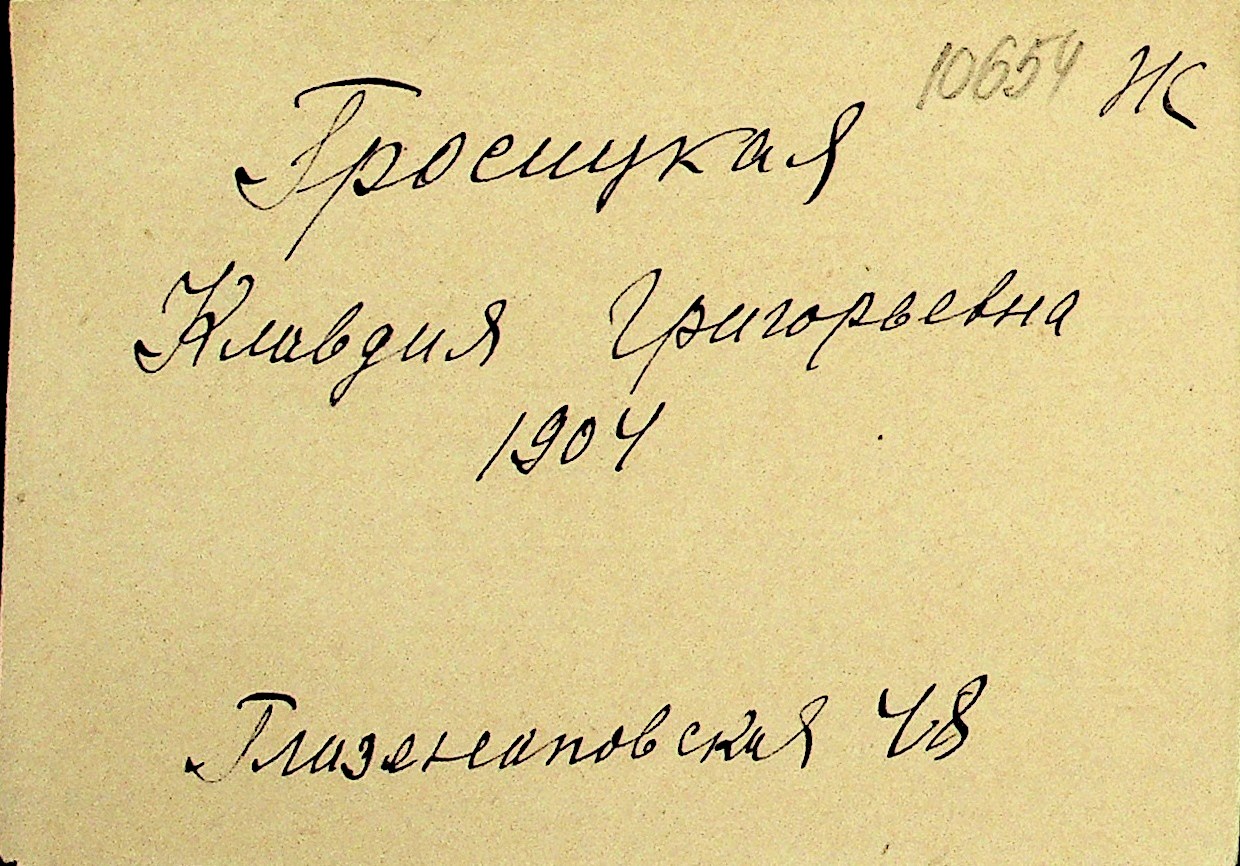 10654 Ж
Гросицкая
Клавдия Григорьевна
1904
Глазенаповская 48